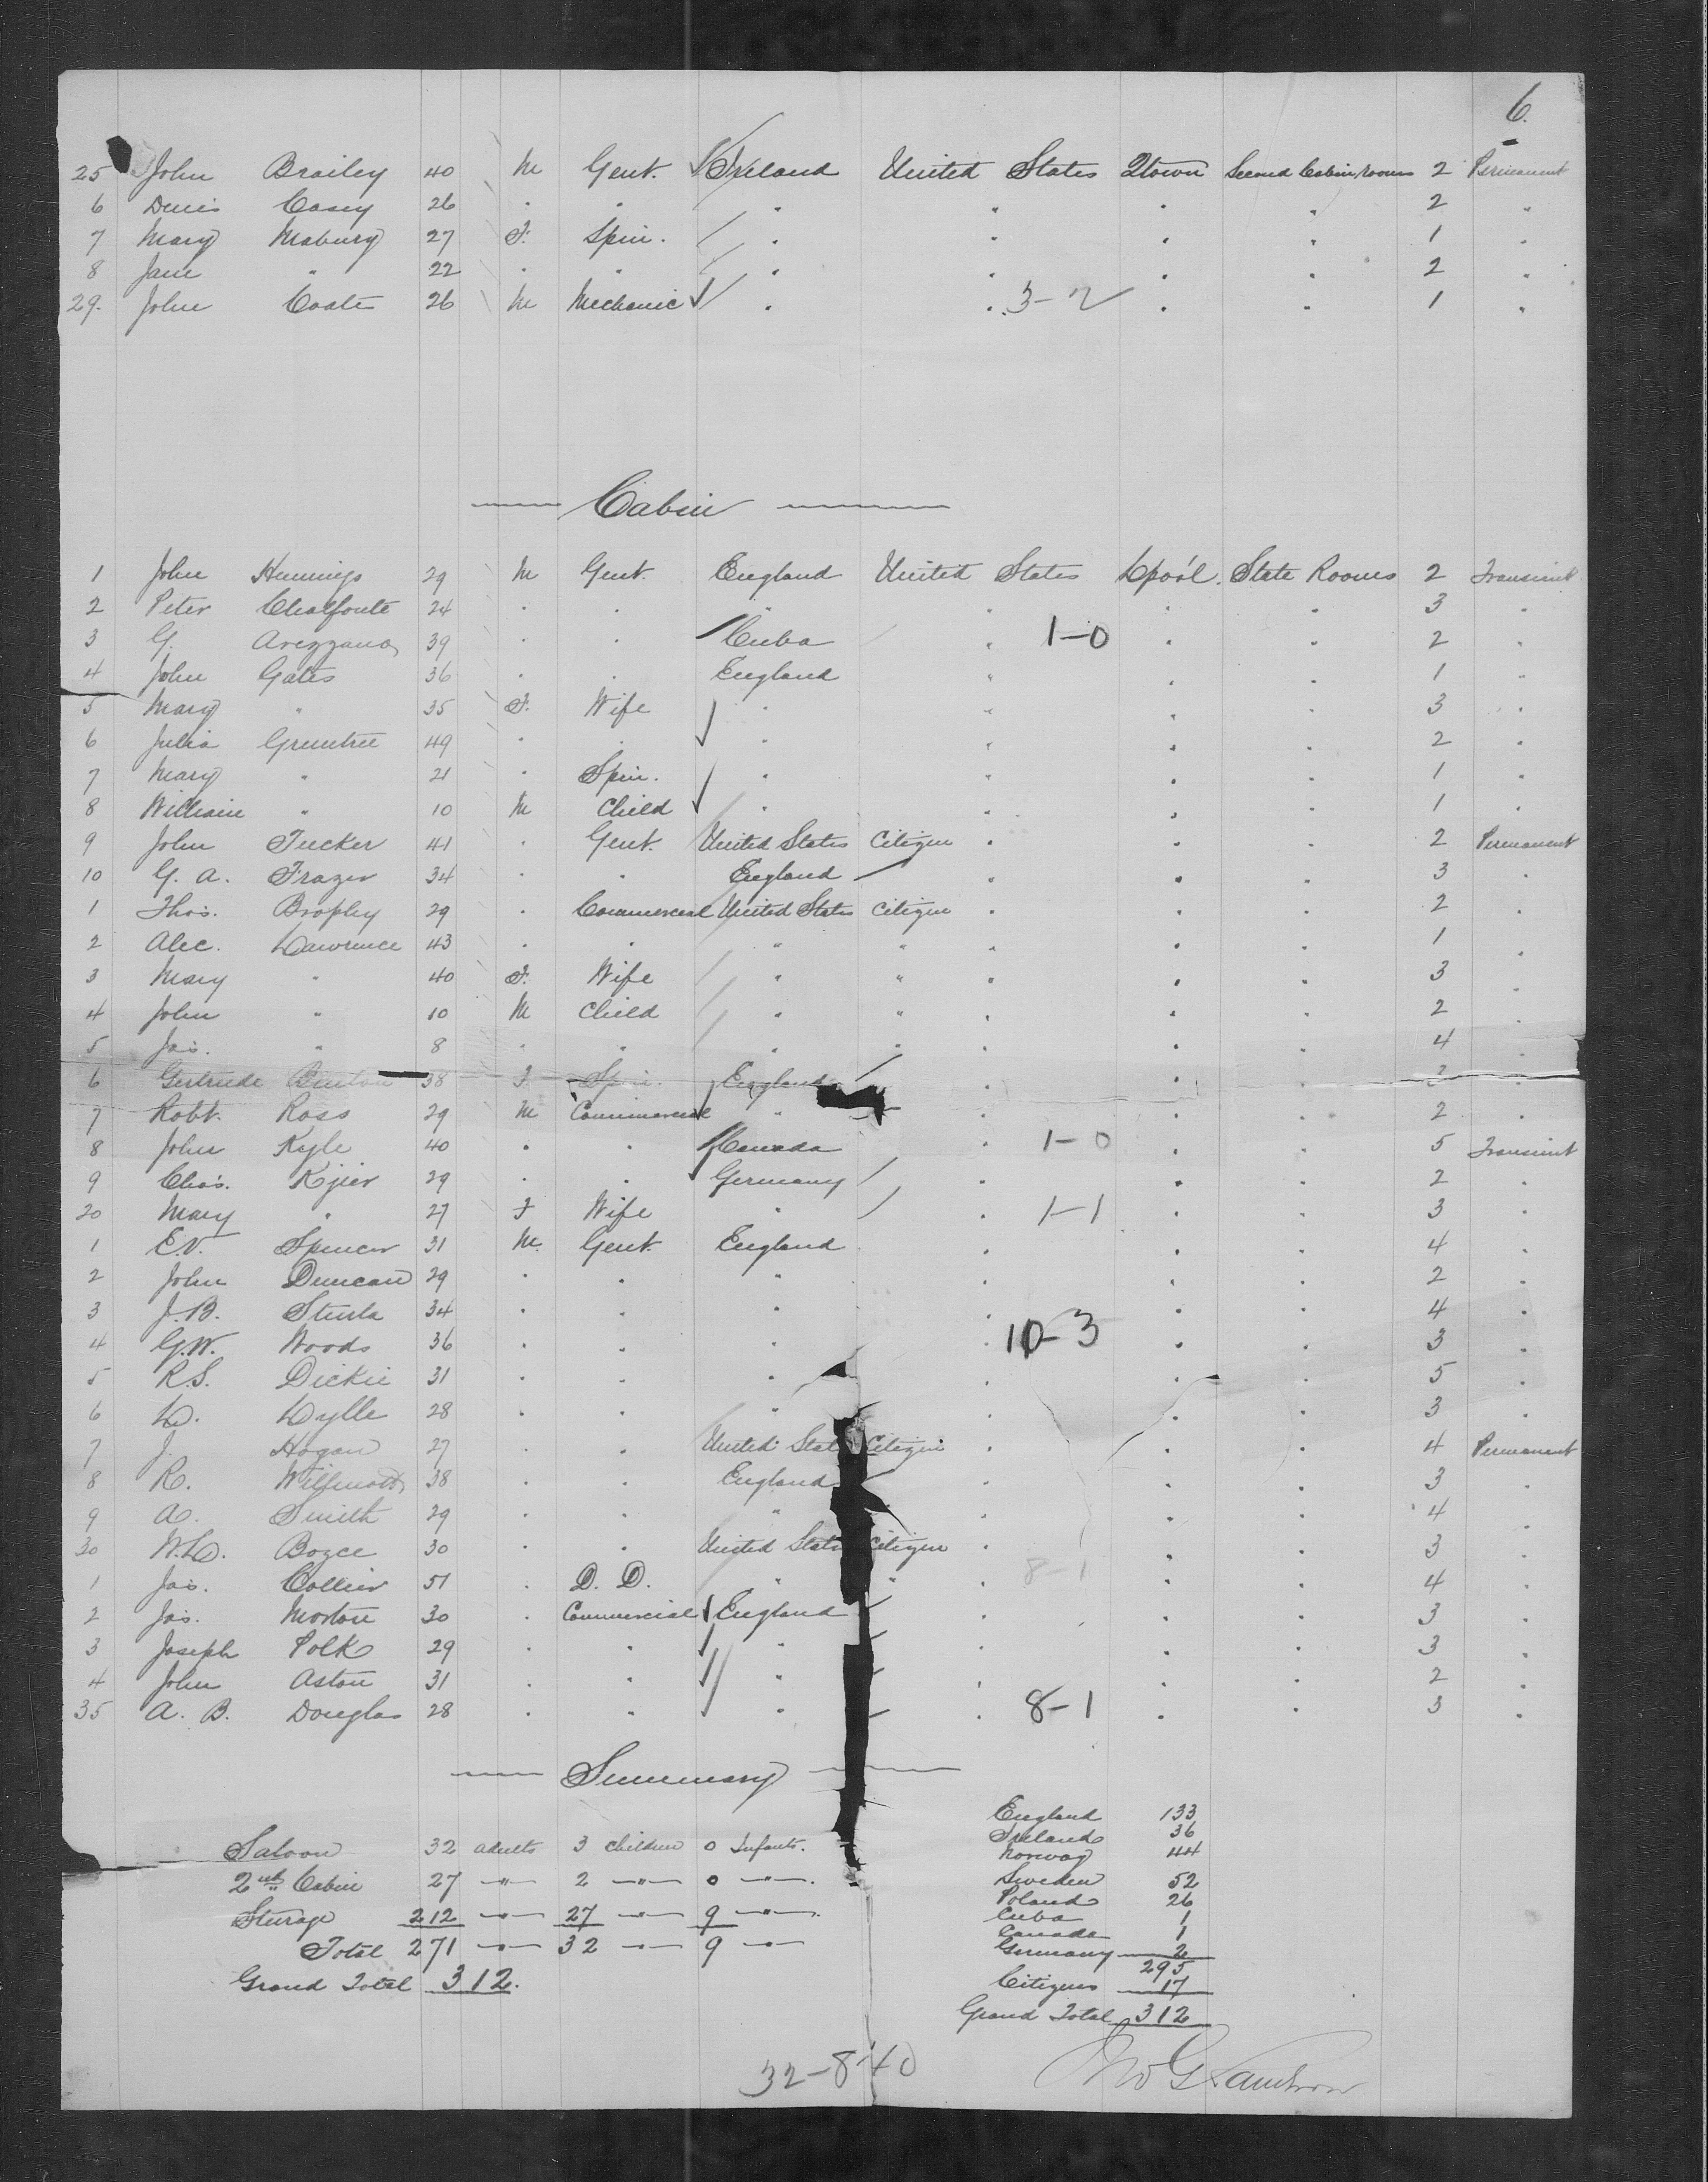 6.
25 John Brailey 40 M Gent. Ireland United States Qtown Second Cabin rooms 2 Permanent
6 Denis Casey 26 " " " " " " 2 "
7 Mary Mabury 27 F. Spin. " " " " 1 "
8 Jane " 22 " " " " " " 2 "
29. John Coate 26 M Mechanic " " 3-2 " " 1 "
Cabin
1 John Hennings 29 M Gent. England United States Lpo'l. State Rooms 2 Transient
2 Peter Chalfonte 24 " " " " " " 3 "
3 G. Arezzano 39 " " Cuba " 1-0 " " 2 "
4 John Gates 36 " " England " " " 1 "
5 Mary " 35 F. Wife " " " " 3 "
6 Julia Greentree 49 " " " " " " 2 "
7 Mary " 21 " Spin. " " " " 1 "
8 William " 10 M Child " " " " 1 "
9 John Tucker 41 " Gent. United States Citizen " " " 2 Permanent
10 G. A. Frazer 34 " " England " " " 3 "
1 Thos. Brophy 29 " Commercial United States Citizen " " " 2 "
2 Alec. Lawrence 43 " " " " " " " 1 "
3 Mary " 40 F. Wife " " " " " 3 "
4 John " 10 M Child " " " " " 2 "
5 Jas. " 8 " " " " " " " 4 "
6 Gertrude Benton 38 F. Spin. England " " " "
7 Robt. Ross 29 M Commercial " " " " 2 "
8 John Kyle 40 " " Canada " 1-0 " " 5 Transient
9 Chas. Kjier 29 " " Germany " " " 2 "
20 Mary " 27 F Wife " " 1-1 " " 3 "
1 E.V. Spencer 31 M. Gent. England " " " 4 "
2 John Duncan 29 " " " " " " 2 "
3 J.B. Sturla 34 " " " " " " 4 "
4 G.W. Woods 36 " " " " 10-3 " " 3 "
5 R.S. Dickie 31 " " " " " " 5 "
6 L. Lylle 28 " " " " " " 3 "
7 J. Hogan 27 " " United States Citizen " " " 4 Permanent
8 R. Willmott 38 " " England " " " 3 "
9 A. Smith 29 " " " " " " 4 "
30 W.L. Boyce 30 " " United States Citizen " " " 3 "
1 Jas. Collier 51 " D. D. " " " 8-1 " " 4 "
2 Jas. Morton 30 " Commercial England " " " 3 "
3 Joseph Polk 29 " " " " " " 3 "
4 John Aston 31 " " " " " " 2 "
35 A. B. Douglas 28 " " " " 8-1 " " 3 "
Summary
Saloon 32 adults 3 Children 0 Infants.
2nd Cabin 27 " 2 " 0 " .
Sturage 212 " 27 " 9 " .
Total 271 " 32 " 9 "
Grand Total 312.
England 133
Ireland 36
Norway 44
Sweden 52
Poland 26
Cuba 1
Canada 1
Germany 2
295
Citizens 17
Grand Total 312
32-8-40